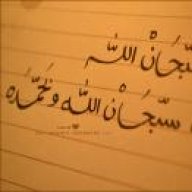 سبحان الله
سبحان الله وبحمده